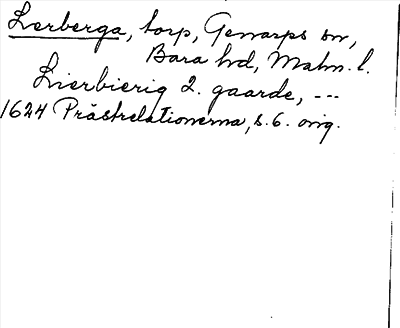 Lerberga, torp, Genarps sn,
Bara hd, Malm. l.
Lierbierig 2. gaarde, ---
1624 Prästrelationerna, s. 6. orig.